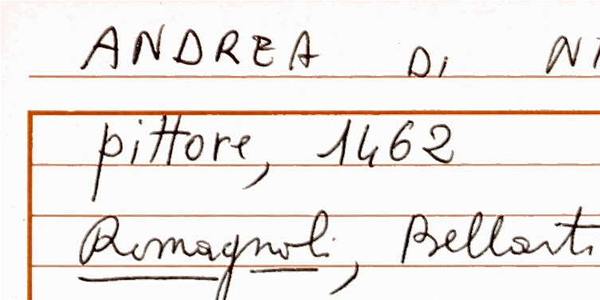 ANDREA Di NI
pittore, 1462
Romagnoli, Bellarti